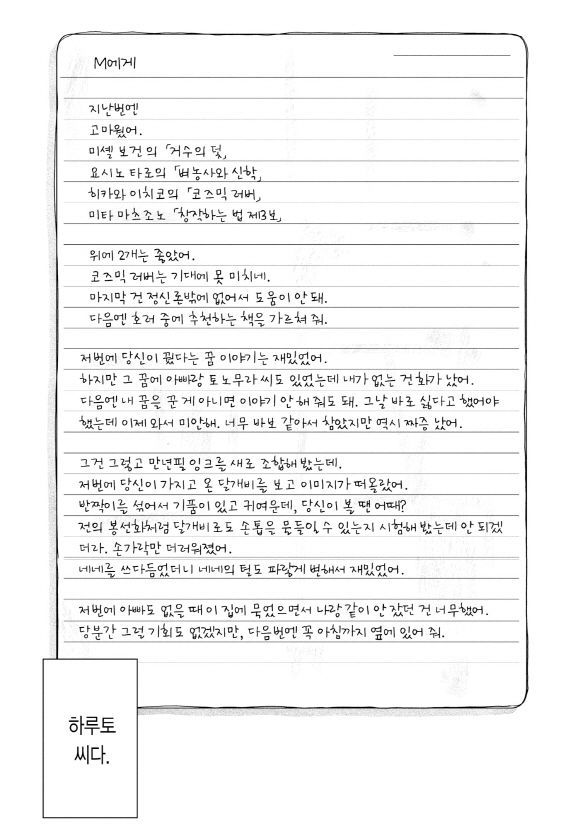 M에게
지난번엔
고마웠어.
미셸 보건의 「거수의 덫」
요시노 타로의 「벼농사와 신학」
히카와 이치코의 「코즈믹 러버」
미타 마츠조노 「창작하는 법 제3보」
위에 2개는 좋았어.
코즈믹 러버는 기대에 못 미치네.
마지막 건 정신론밖에 없어서 도움이 안 돼.
다음엔 호러 중에 추천하는 책을 가르쳐 줘.
저번에 당신이 꿨다는 꿈 이야기는 재밌었어.
하지만 그 꿈에 아빠랑 토노무라 씨도 있었는데 내가 없는 건 화가 났어.
다음엔 내 꿈을 꾼 게 아니면 이야기 안 해 줘도 돼. 그날 바로 싫다고 했어야
했는데 이제 와서 미안해. 너무 바보 같아서 참았지만 역시 짜증 났어.
그건 그렇고 만년필 잉크를 새로 조합해 봤는데.
저번에 당신이 가지고 온 달개비를 보고 이미지가 떠올랐어.
반짝이를 섞어서 기품이 있고 귀여운데, 당신이 볼 땐 어때?
전의 봉선화처럼 달개비로도 손톱을 물들일 수 있는지 시험해 봤는데 안 되겠
더라. 손가락만 더러워졌어.
네네를 쓰다듬었더니 네네의 털도 파랗게 변해서 재밌었어.
저번에 아빠도 없을 때 이 집에 묵었으면서 나랑 같이 안 잤던 건 너무했어.
당분간 그럴 기회도 없겠지만, 다음번엔 꼭 아침까지 옆에 있어 줘.
하루토
씨다.